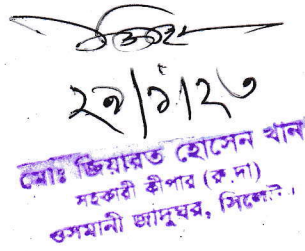 ২৯|১|২৩
মোঃ জিয়ারত হোসেন খান
সহকারী কীপার (রু.দা)
ওসমানী জাদুঘর, সিলেট।